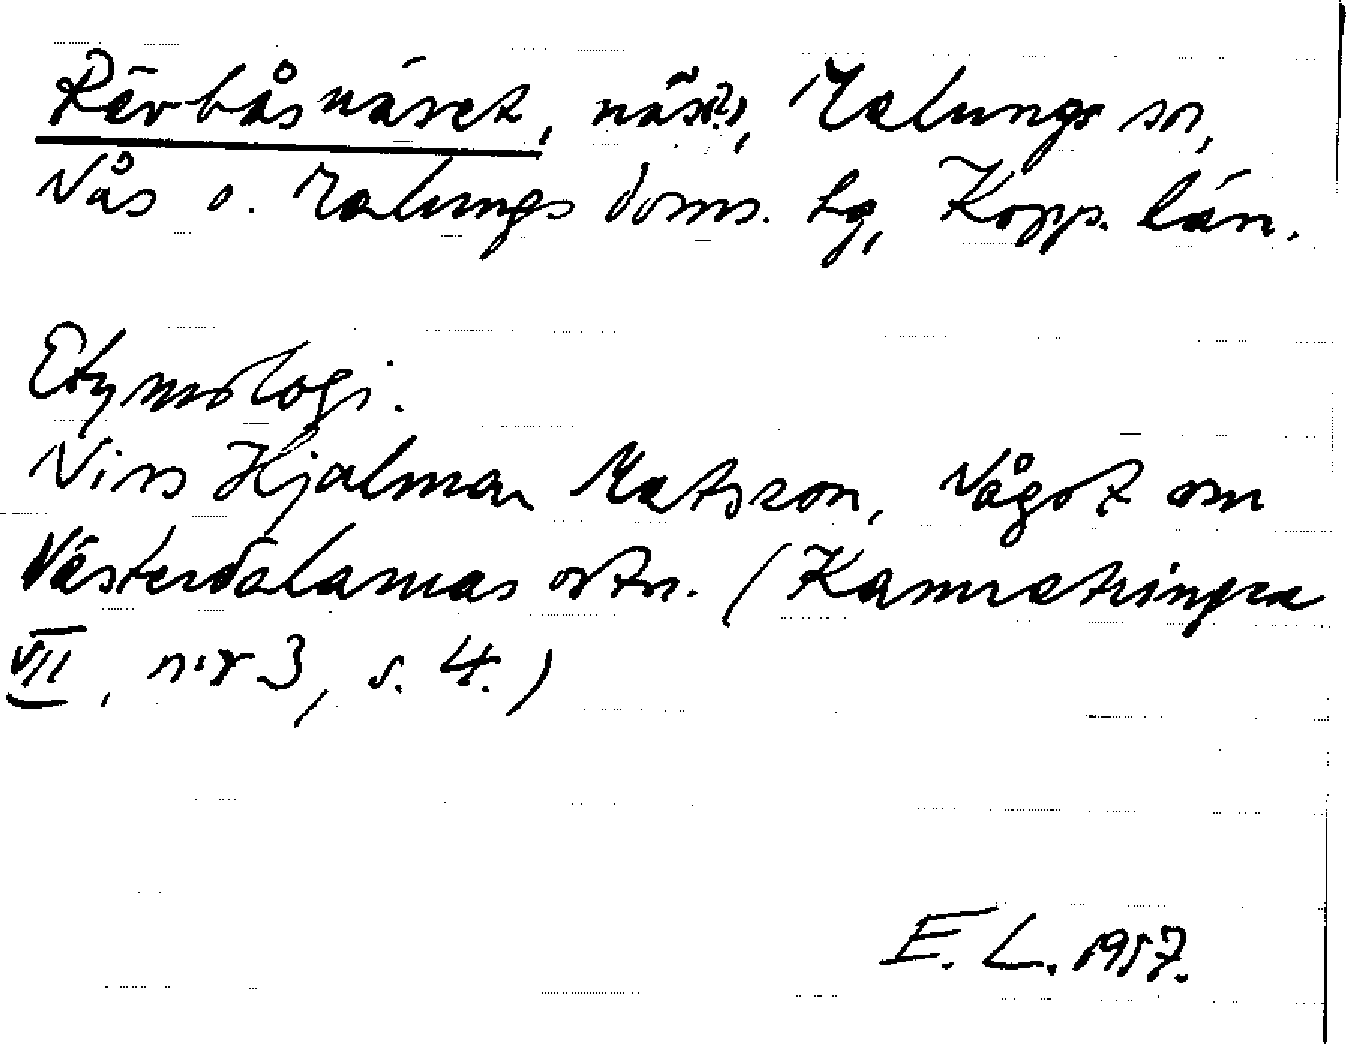 Rävbåsnäset, näs(?), Malungs sn,
Nås o. Malungs doms. hg, Kopp. län.
Etymologi.
Nirs Hjalmar Matsson, Något om
Västerdalarnas ortn. (Kamratringen
VII, n:r 3, s. 4.)
E. L. 1957.